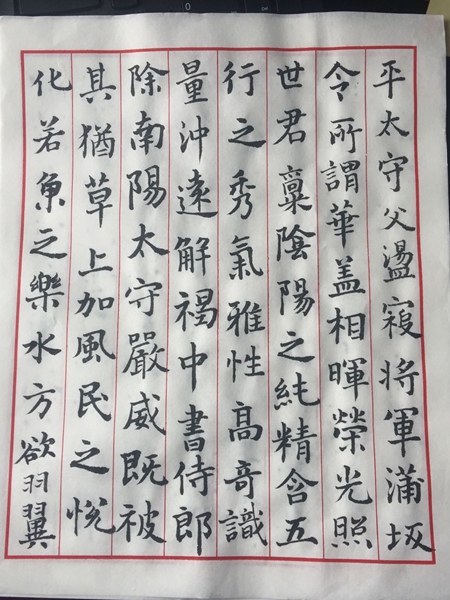 平太守父盪寇将軍蒲坂
令所謂華盖相暉榮光照
世君稟陰陽之純精含五
行之秀氣雅性高奇識
量沖遠解褐中書侍郎
除南陽太守嚴威既被
其猶草上加風民之悅
化若魚之樂水方欲羽翼